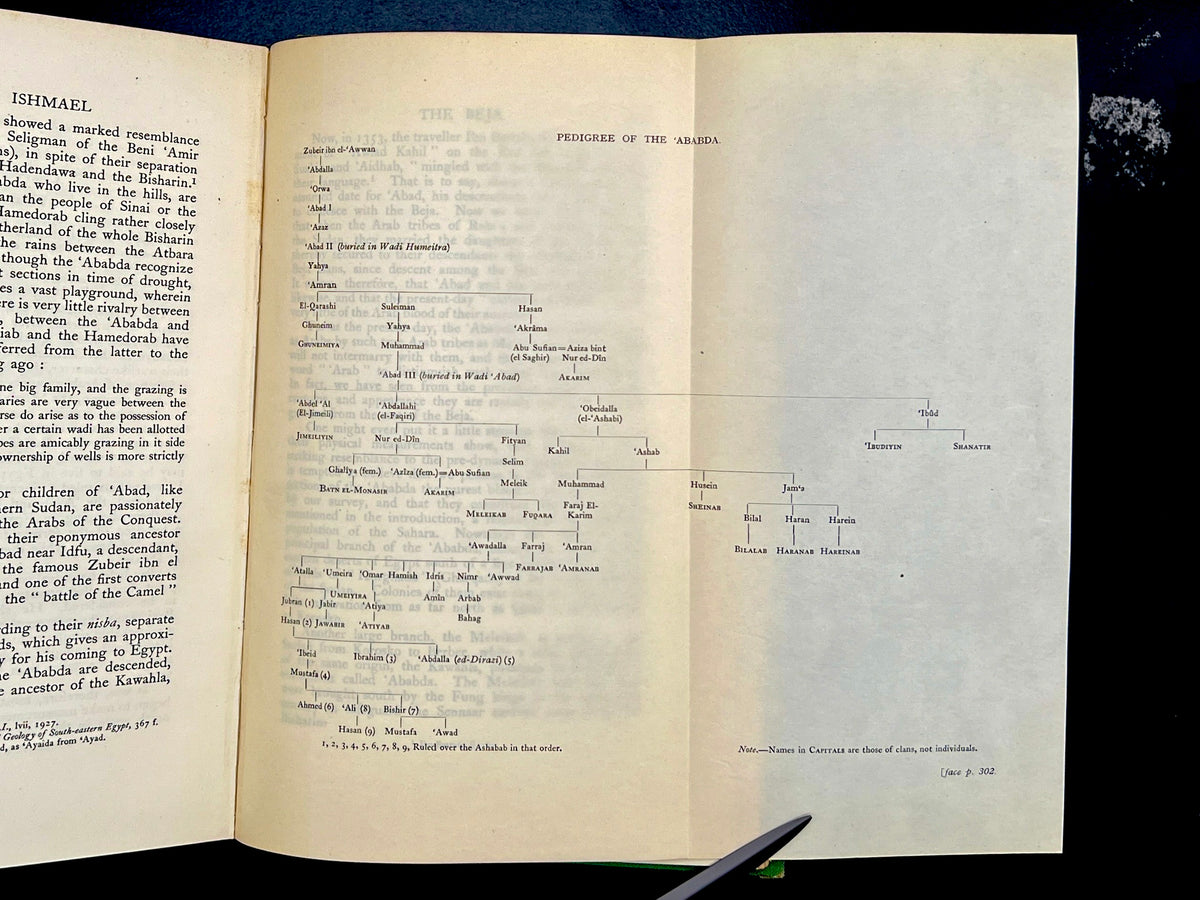 ISHMAEL
showed a marked resemblance
Seligman of the Beni ‘Amir
ns), in spite of their separation
Hadendawa and the Bisharin.¹
abda who live in the hills, are
an the people of Sinai or the
Hamedorab cling rather closely
therland of the whole Bisharin
the rains between the Atbara
though the ‘Ababda recognize
t sections in time of drought,
es a vast playground, wherein
ere is very little rivalry between
, between the ‘Ababda and
iab and the Hamedorab have
ferred from the latter to the
g ago :
ne big family, and the grazing is
aries are very vague between the
rse do arise as to the possession of
er a certain wadi has been allotted
bes are amicably grazing in it side
ownership of wells is more strictly
or children of ‘Abad, like
hern Sudan, are passionately
the Arabs of the Conquest.
their eponymous ancestor
bad near Idfu, a descendant,
the famous Zubeir ibn el
and one of the first converts
the “ battle of the Camel ”
ding to their nisba, separate
ds, which gives an approxi-
y for his coming to Egypt.
he ‘Ababda are descended,
e ancestor of the Kawahla,
I., lvii, 1927.
Geology of South-eastern Egypt, 367 f.
d, as ‘Ayaida from ‘Ayad.
PEDIGREE OF THE ‘ABABDA.
Zubeir ibn el-‘Awwan
‘Abdalla
‘Orwa
‘Abad I
‘Azaz
‘Abad II (buried in Wadi Humeitra)
Yahya
‘Amran
El-Qarashi Suleiman Hasan
Ghuneim Yahya ‘Akrâma
GHUNEIMIYA Muhammad Abu Sufian=Aziza bint
(el Saghir) Nur ed-Dîn
‘Abad III (buried in Wadi ‘Abad) AKARIM
‘Abdel ‘Al ‘Abdallahi ‘Obeidalla ‘Ibûd
(El-Jimeili) (el-Faqiri) (el-‘Ashabi)
JIMEILIYIN Nur ed-Dîn Fityan Kahil ‘Ashab ‘IBUDIYIN SHANATIR
Selim
Ghaliya (fem.) ‘Azîza (fem.)=Abu Sufian Meleik Muhammad Husein Jam‘a
BATN EL-MONASIR AKARIM MELEIKAB FUQARA Faraj El-Karim SHEINAB Bilal Haran Harein
‘Awadalla Farraj ‘Amran BILALAB HARANAB HAREINAB
FARRAJAB ‘AMRANAB
‘Atalla ‘Umeira ‘Omar Hamish Idris Nimr ‘Awwad
UMEIYIRA Amîn Arbab
Jubran (1) Jabir ‘Atiya Bahag
Hasan (2) JAWABIR ‘ATIYAB
‘Ibeid Ibrahim (3) ‘Abdalla (ed-Dirazi) (5)
Mustafa (4)
Ahmed (6) ‘Ali (8) Bishir (7)
Hasan (9) Mustafa ‘Awad
1, 2, 3, 4, 5, 6, 7, 8, 9, Ruled over the Ashabab in that order.
Note.—Names in CAPITALS are those of clans, not individuals.
[face p. 302.